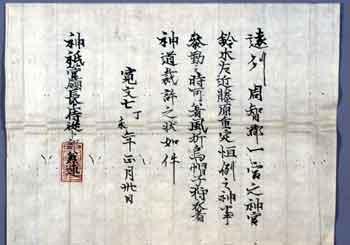 遠州周智郡一宮之神官
鈴木左近藤原重定恒例之神事
参勤之時可着風折烏帽子狩衣者
神道裁許之状如件
寛文七丁未年正月日
神祇管領長上侍従卜部兼連